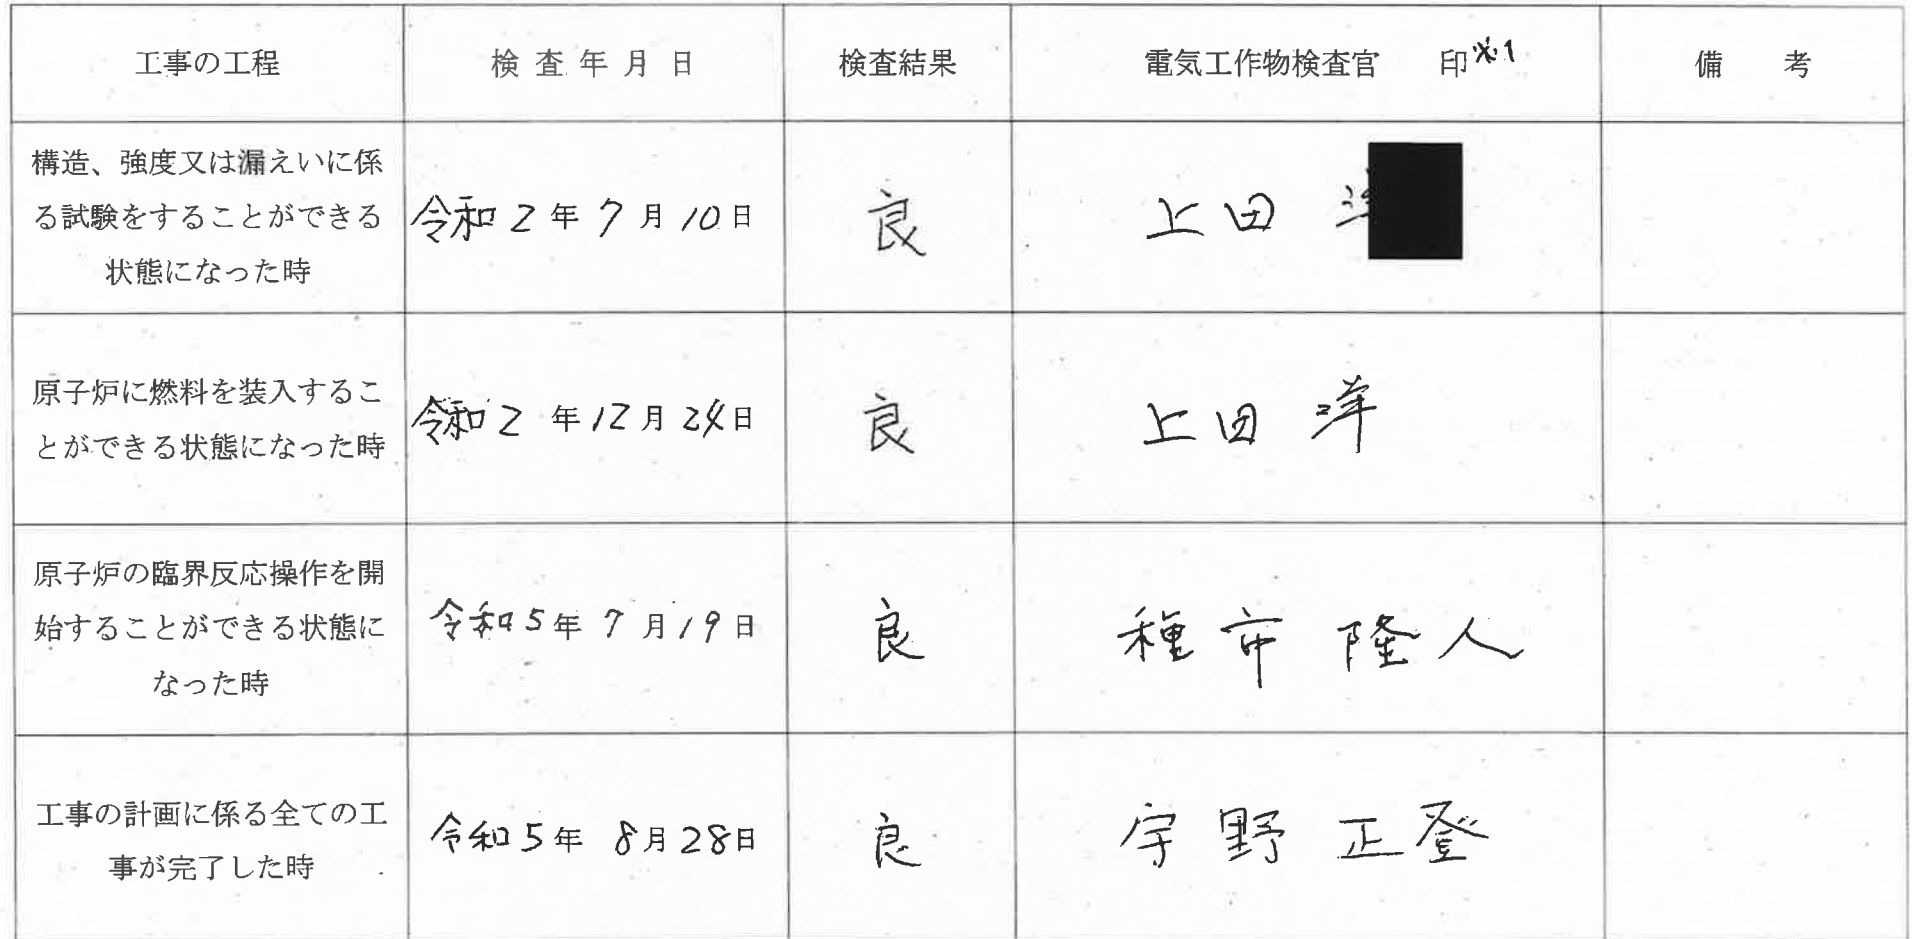 工事の工程 検査年月日 検査結果 電気工作物検査官 印※1 備 考
構造、強度又は漏えいに係
る試験をすることができる
状態になった時
令和2年7月10日
良
上田
原子炉に燃料を装入するこ
とができる状態になった時
令和2年12月24日
良
上田 洋
原子炉の臨界反応操作を開
始することができる状態に
なった時
令和5年7月19日
良
種市 隆人
工事の計画に係る全ての工
事が完了した時
令和5年8月28日
良
宇野 正登